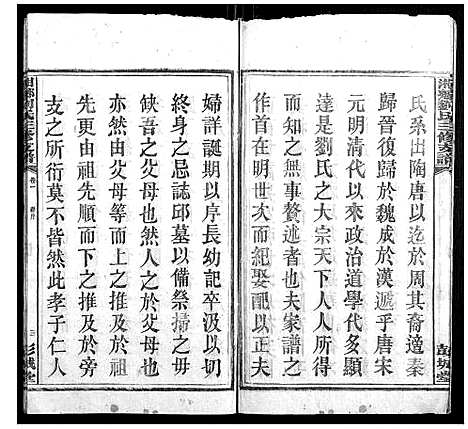 湘鄉劉氏三修支譜
彭城堂
氏系出陶唐以迄於周其裔適秦
歸晉復歸於魏成於漢遞乎唐宋
元明清代以來政治道學代多顯
達是劉氏之大宗天下人所共知
而在明無事贅述者也夫家譜之
作首在明世次而紀娶配以正夫
婦詳誕期以序長幼記卒汲以切
缺吾感也忌誌邱墓以備祭掃之
亦然由父母等也然人之於父母
先更而由祖先順而下之推及於旁
支之所衍莫不皆然此孝子仁人
卷一
三
彭城堂